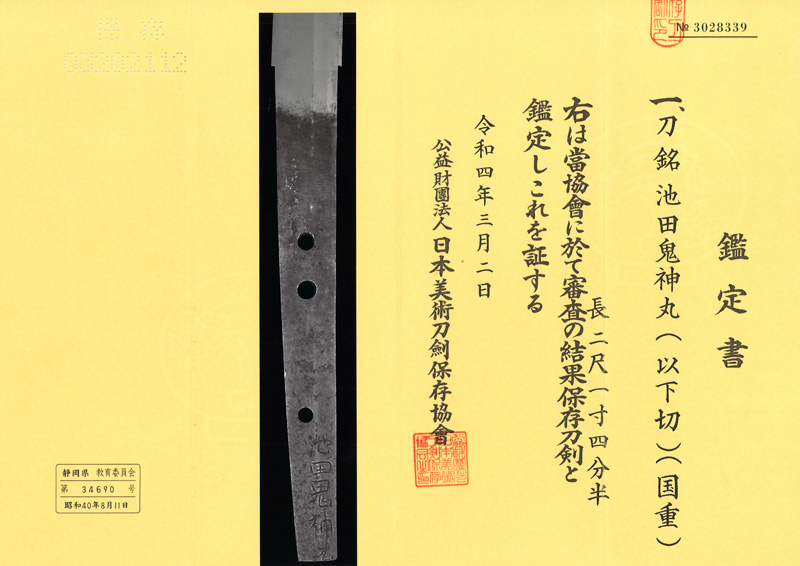 № 3028339
鑑定書
一、刀 銘 池田鬼神丸(以下切)(国重)
長二尺一寸四分半
右は當協會に於て審査の結果保存刀剣と
鑑定しこれを証する
令和四年三月二日
公益財團法人日本美術刀劍保存協會
池田鬼神丸
静岡県 教育委員会
第 34690 号
昭和40年8月11日